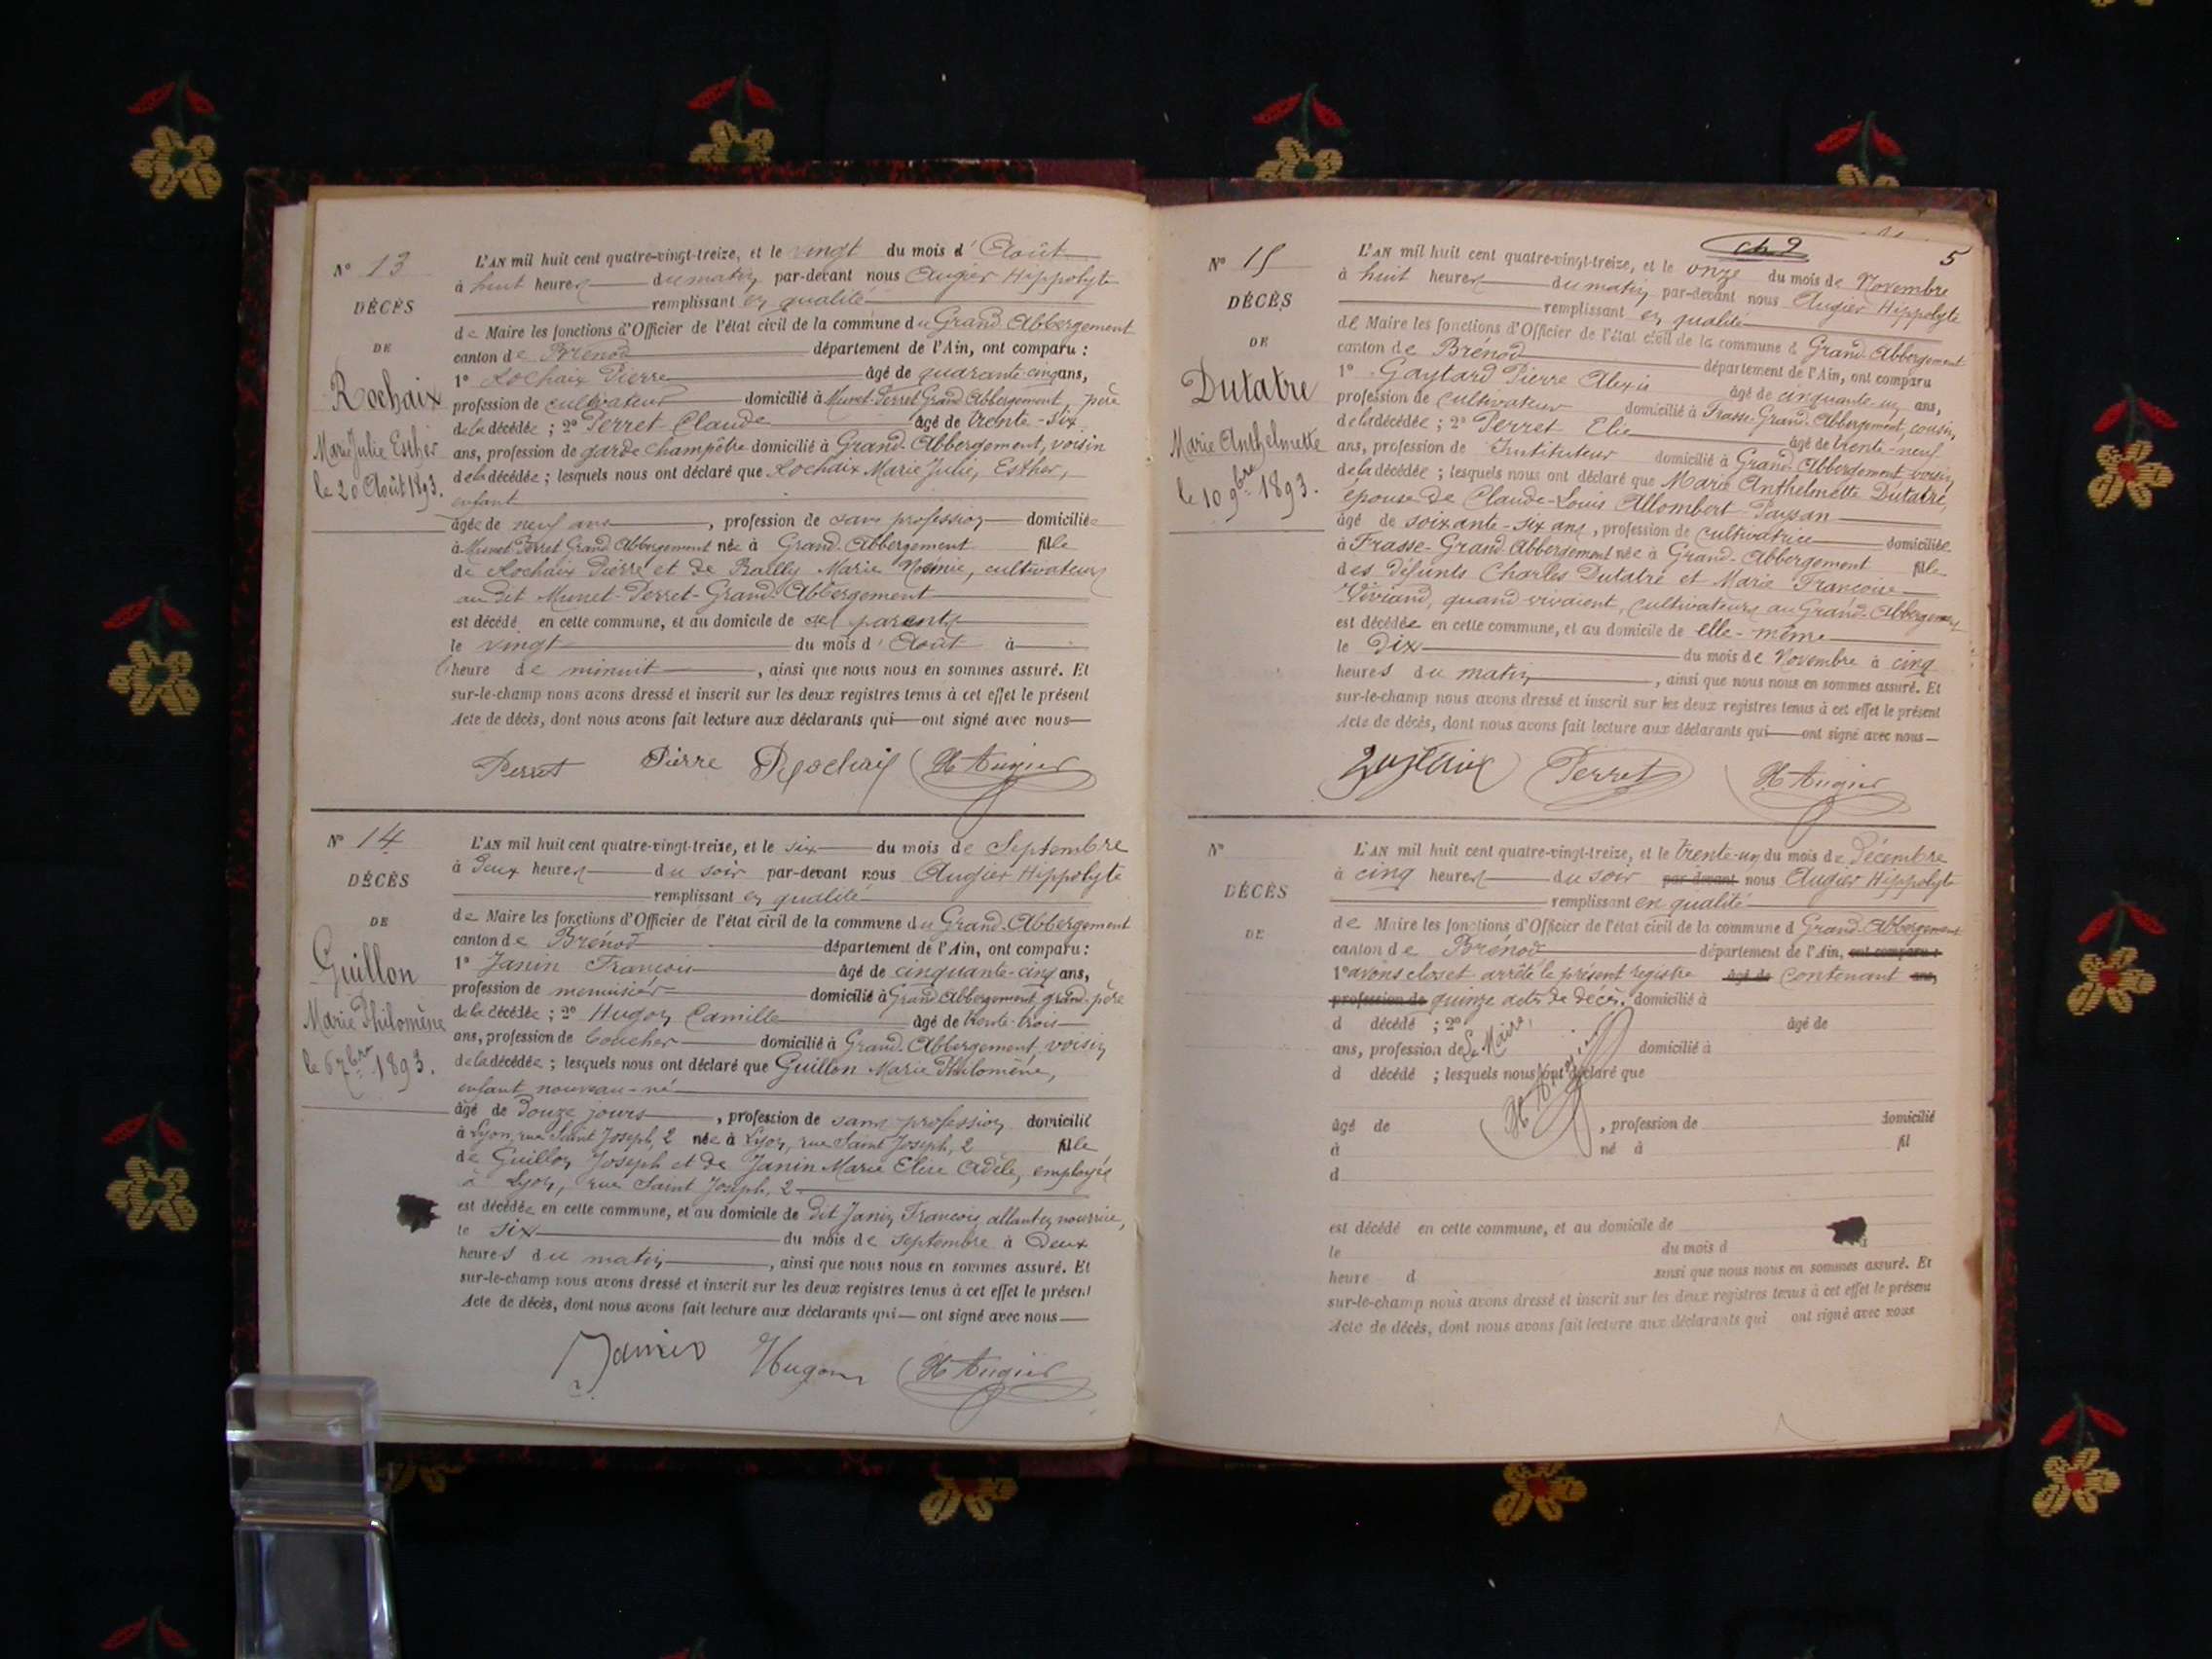 N° 13
DÉCÈS
DE
Rochaix
Marie Julie Esther
le 20 Août 1893.
L'AN mil huit cent quatre-vingt-treize, et le vingt du mois d'Août
à huit heures du matin par-devant nous Augier Hippolyte
remplissant en qualité
de Maire les fonctions d'Officier de l'état civil de la commune du Grand-Abbergement
canton de Brénod département de l'Ain, ont comparu :
1° Rochaix Pierre âgé de quarante-cinq ans,
profession de cultivateur domicilié à Munet-Perret Grand Abbergement, père
de la décédée ; 2° Perret Claude âgé de trente-six
ans, profession de garde champêtre domicilié à Grand-Abbergement, voisin
de la décédée ; lesquels nous ont déclaré que Rochaix Marie Julie, Esther,
enfant
âgée de neuf ans , profession de sans profession domiciliée
à Munet-Perret Grand Abbergement née à Grand-Abbergement fille
de Rochaix Pierre et de Bailly Marie Noémie, cultivateurs
au dit Munet-Perret-Grand-Abbergement
est décédé en cette commune, et au domicile de ses parents
le vingt du mois d'Août à
heure de minuit , ainsi que nous nous en sommes assuré. Et
sur-le-champ nous avons dressé et inscrit sur les deux registres tenus à cet effet le présent
Acte de décès, dont nous avons fait lecture aux déclarants qui ont signé avec nous
Perret Pierre Rochaix H Augier
N° 14
DÉCÈS
DE
Guillon
Marie Philomène
le 6 7bre 1893.
L'AN mil huit cent quatre-vingt-treize, et le six du mois de Septembre
à deux heures du soir par-devant nous Augier Hippolyte
remplissant en qualité
de Maire les fonctions d'Officier de l'état civil de la commune du Grand-Abbergement
canton de Brénod département de l'Ain, ont comparu :
1° Janin François âgé de cinquante-cinq ans,
profession de menuisier domicilié à Grand Abbergement, grand-père
de la décédée ; 2° Hugon Camille âgé de trente-trois
ans, profession de boucher domicilié à Grand-Abbergement, voisin
de la décédée ; lesquels nous ont déclaré que Guillon Marie Philomène,
enfant nouveau-né
âgé de douze jours , profession de sans profession domicilié
à Lyon, rue Saint Joseph, 2 née à Lyon, rue Saint Joseph, 2 fille
de Guillon Joseph et de Janin Marie Elise Adèle, employés
à Lyon, rue Saint Joseph, 2
est décédée en cette commune, et au domicile de dit Janin François, allant en nourrice,
le six du mois de septembre à deux
heures du matin , ainsi que nous nous en sommes assuré. Et
sur-le-champ nous avons dressé et inscrit sur les deux registres tenus à cet effet le présent
Acte de décès, dont nous avons fait lecture aux déclarants qui ont signé avec nous
Janin Hugon H Augier
5
N° 15
DÉCÈS
DE
Dutatre
Marie Anthelmette
le 10 9bre 1893.
L'AN mil huit cent quatre-vingt-treize, et le onze du mois de Novembre
à huit heures du matin par-devant nous Augier Hippolyte
remplissant en qualité
de Maire les fonctions d'Officier de l'état civil de la commune d Grand-Abbergement
canton de Brénod département de l'Ain, ont comparu
1° Gaytard Pierre Alexis âgé de cinquante-un ans,
profession de cultivateur domicilié à Frasse-Grand-Abbergement, cousin,
de la décédée ; 2° Perret Elie âgé de trente-neuf
ans, profession de Instituteur domicilié à Grand-Abbergement, voisin
de la décédée ; lesquels nous ont déclaré que Marie Anthelmette Dutatre,
épouse de Claude-Louis Allombert-Paysan
âgé de soixante-six ans , profession de cultivatrice domiciliée
à Frasse-Grand-Abbergement née à Grand-Abbergement fille
des défunts Charles Dutatre et Marie Françoise
Viviand, quand vivaient, cultivateurs au Grand-Abbergement
est décédée en cette commune, et au domicile de elle-même
le Dix du mois de Novembre à cinq
heures du matin , ainsi que nous nous en sommes assuré. Et
sur-le-champ nous avons dressé et inscrit sur les deux registres tenus à cet effet le présent
Acte de décès, dont nous avons fait lecture aux déclarants qui ont signé avec nous
Perret H Augier
N°
DÉCÈS
DE
L'AN mil huit cent quatre-vingt-treize, et le trente-un du mois de Décembre
à cinq heures du soir par-devant nous Augier Hippolyte
remplissant en qualité
de Maire les fonctions d'Officier de l'état civil de la commune d Grand-Abbergement
canton de Brénod département de l'Ain, ont comparu :
1° avons clos et arrêté le présent registre âgé de contenant ans,
profession de quinze actes de décès. domicilié à
d décédé ; 2° âgé de
ans, profession de Le Maire, domicilié à
d décédé ; lesquels nous ont déclaré que
H Augier
âgé de , profession de domicilié
à né à fil
d
est décédé en cette commune, et au domicile de
le du mois d
heure d ainsi que nous nous en sommes assuré. Et
sur-le-champ nous avons dressé et inscrit sur les deux registres tenus à cet effet le présent
Acte de décès, dont nous avons fait lecture aux déclarants qui ont signé avec nous